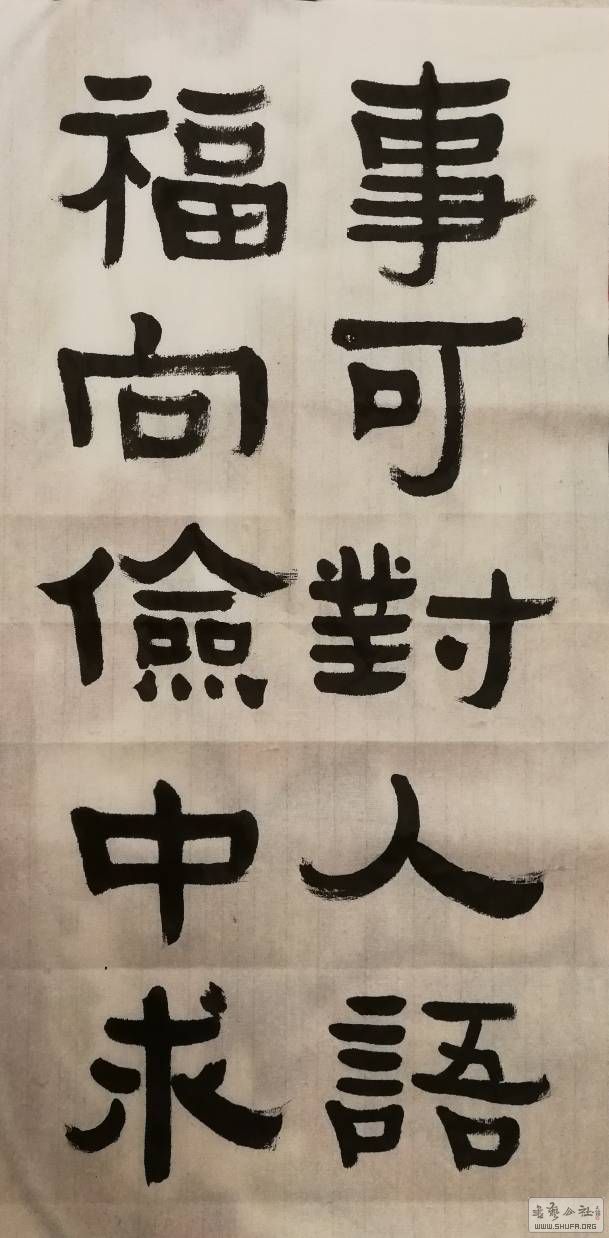 事可對人語
福向儉中求
WWW.SHUFA.ORG